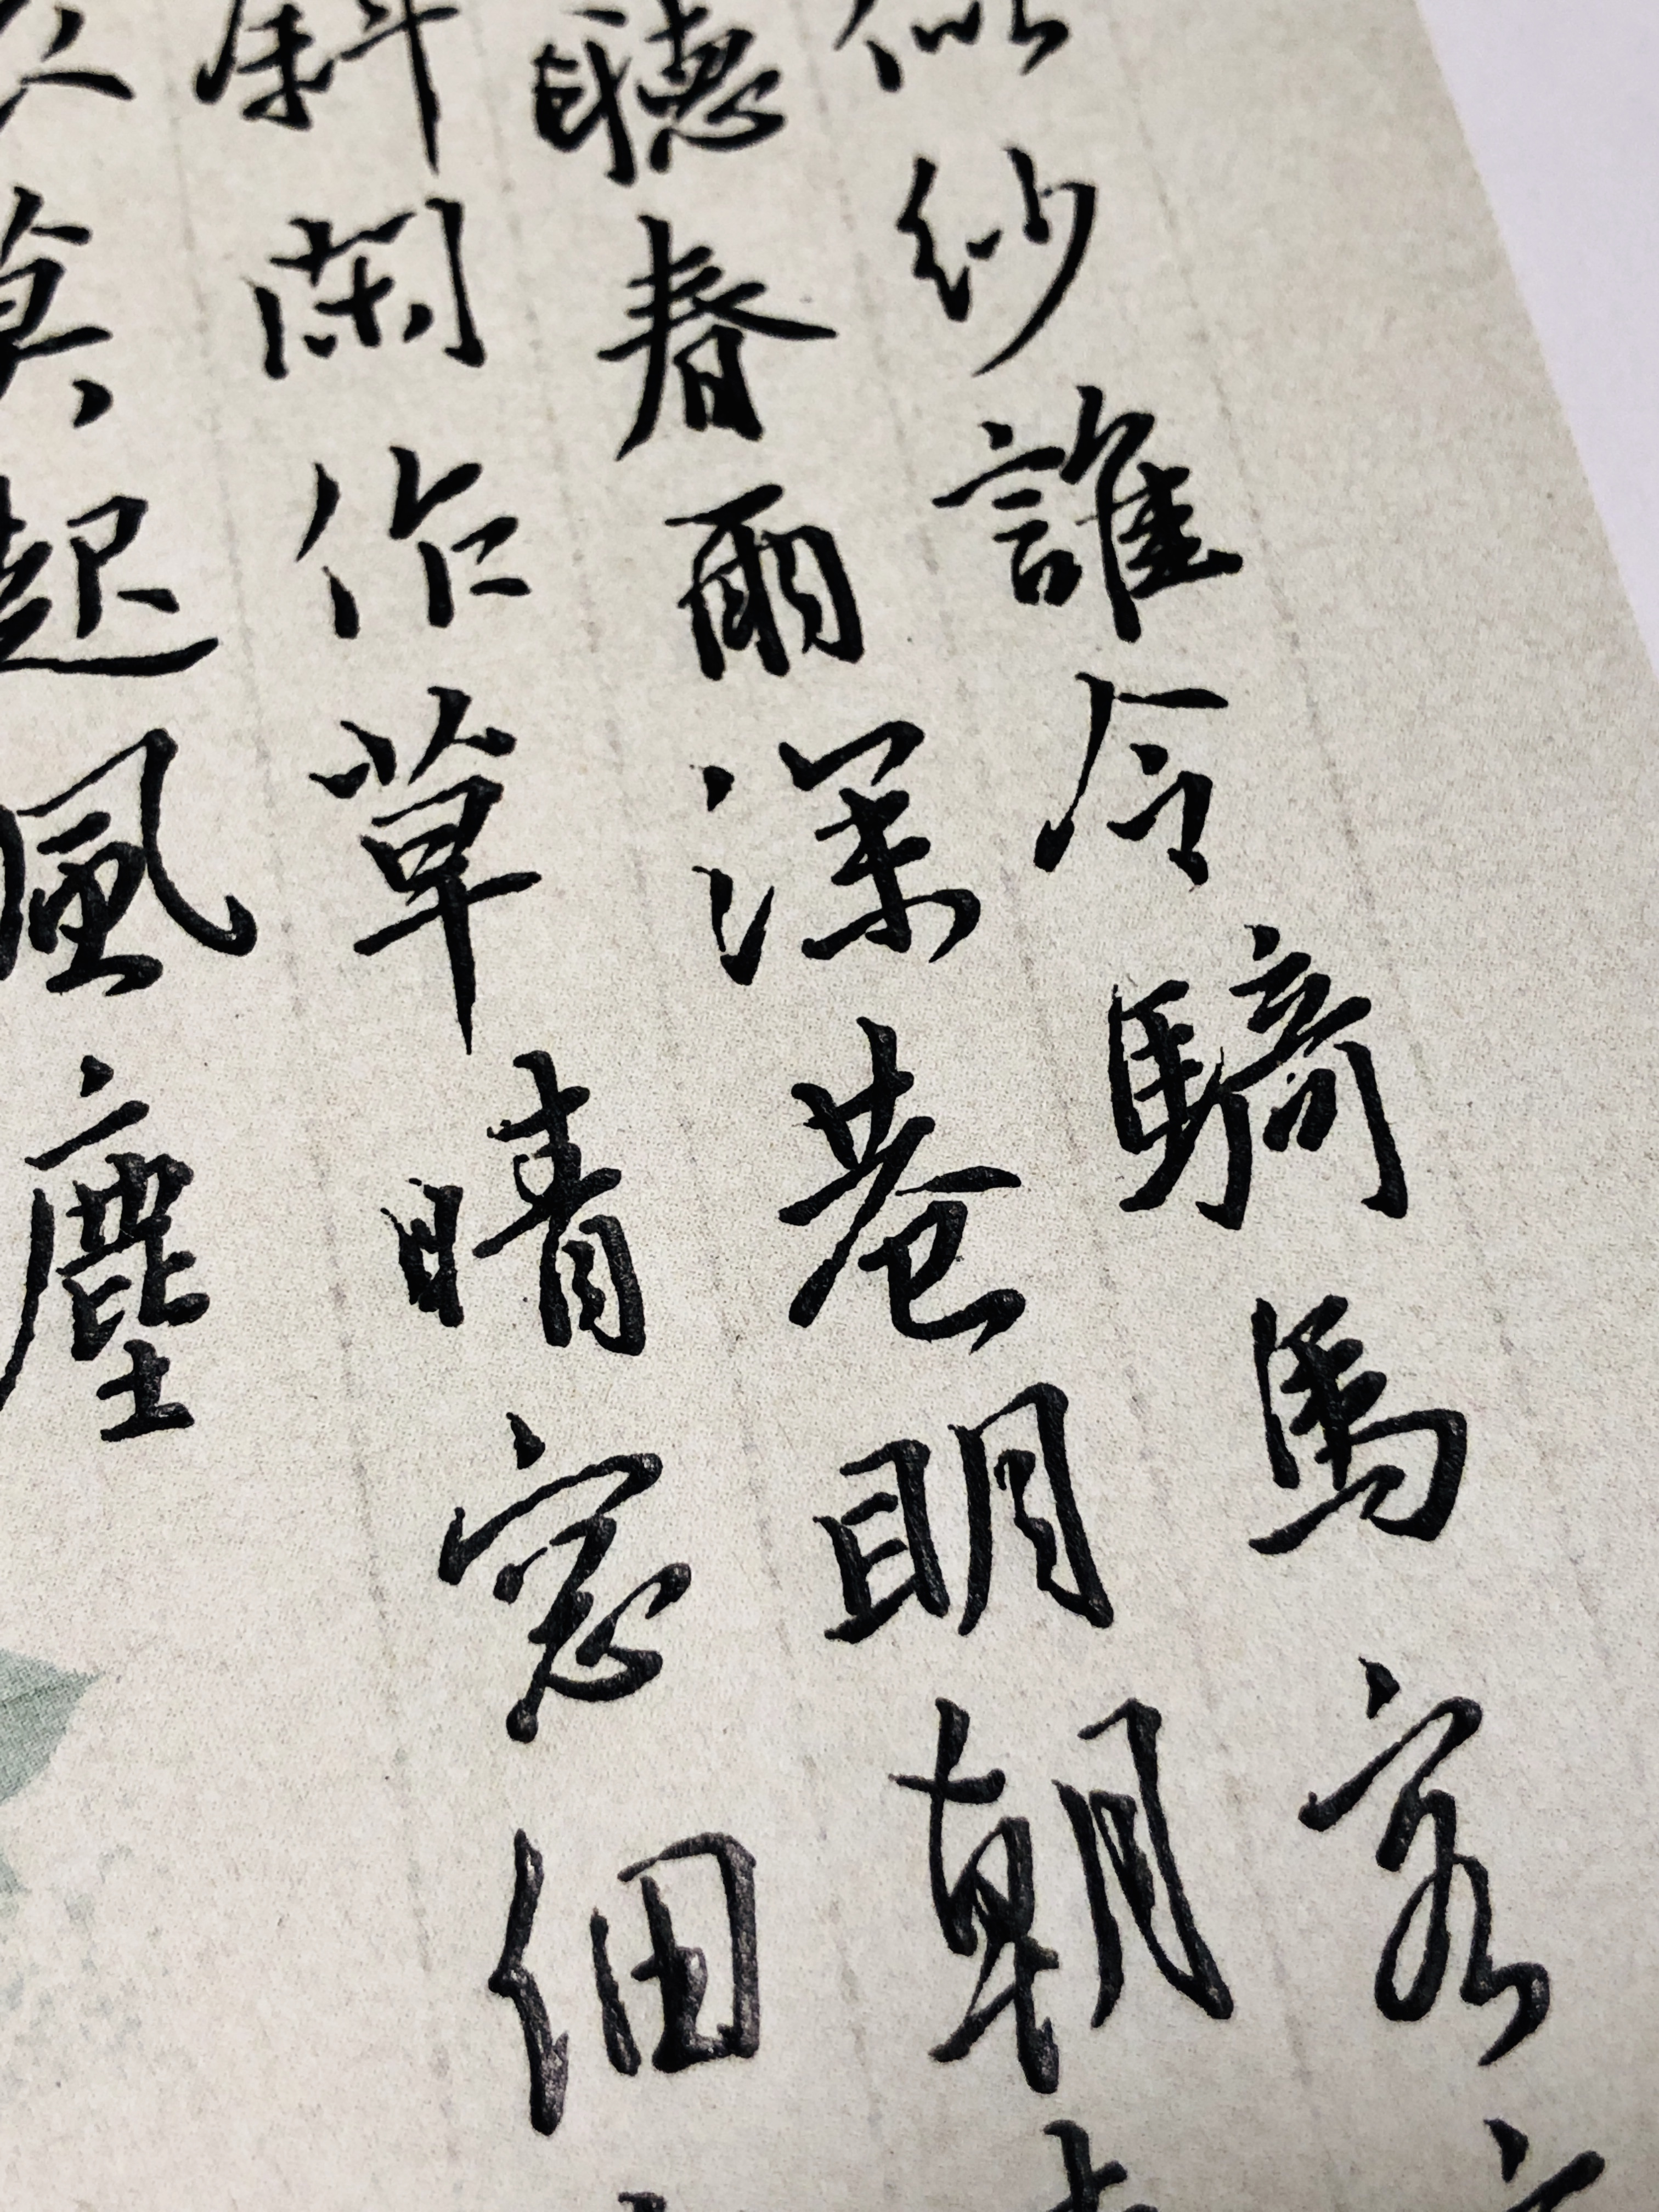 似紗誰令騎馬客京
聽春雨深巷明朝
斜閑作草晴窓細
莫起風塵